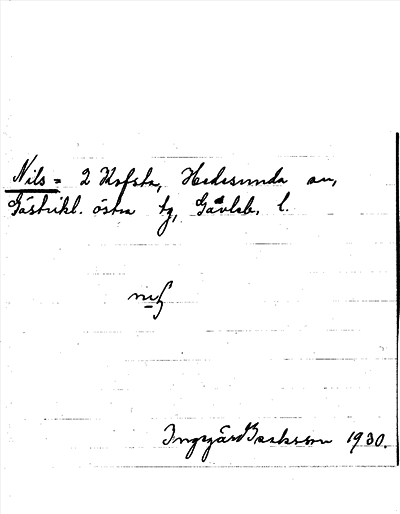 Nils = 2 Hofsta, Hedesunda sn,
Gästrikl. östra tg, Gävleb. l.
Ingegärd Isaksson 1930.